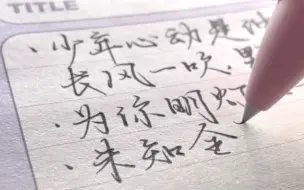 TITLE
·少年心动是仲
长风一吹,野
·为你明灯
·未知全